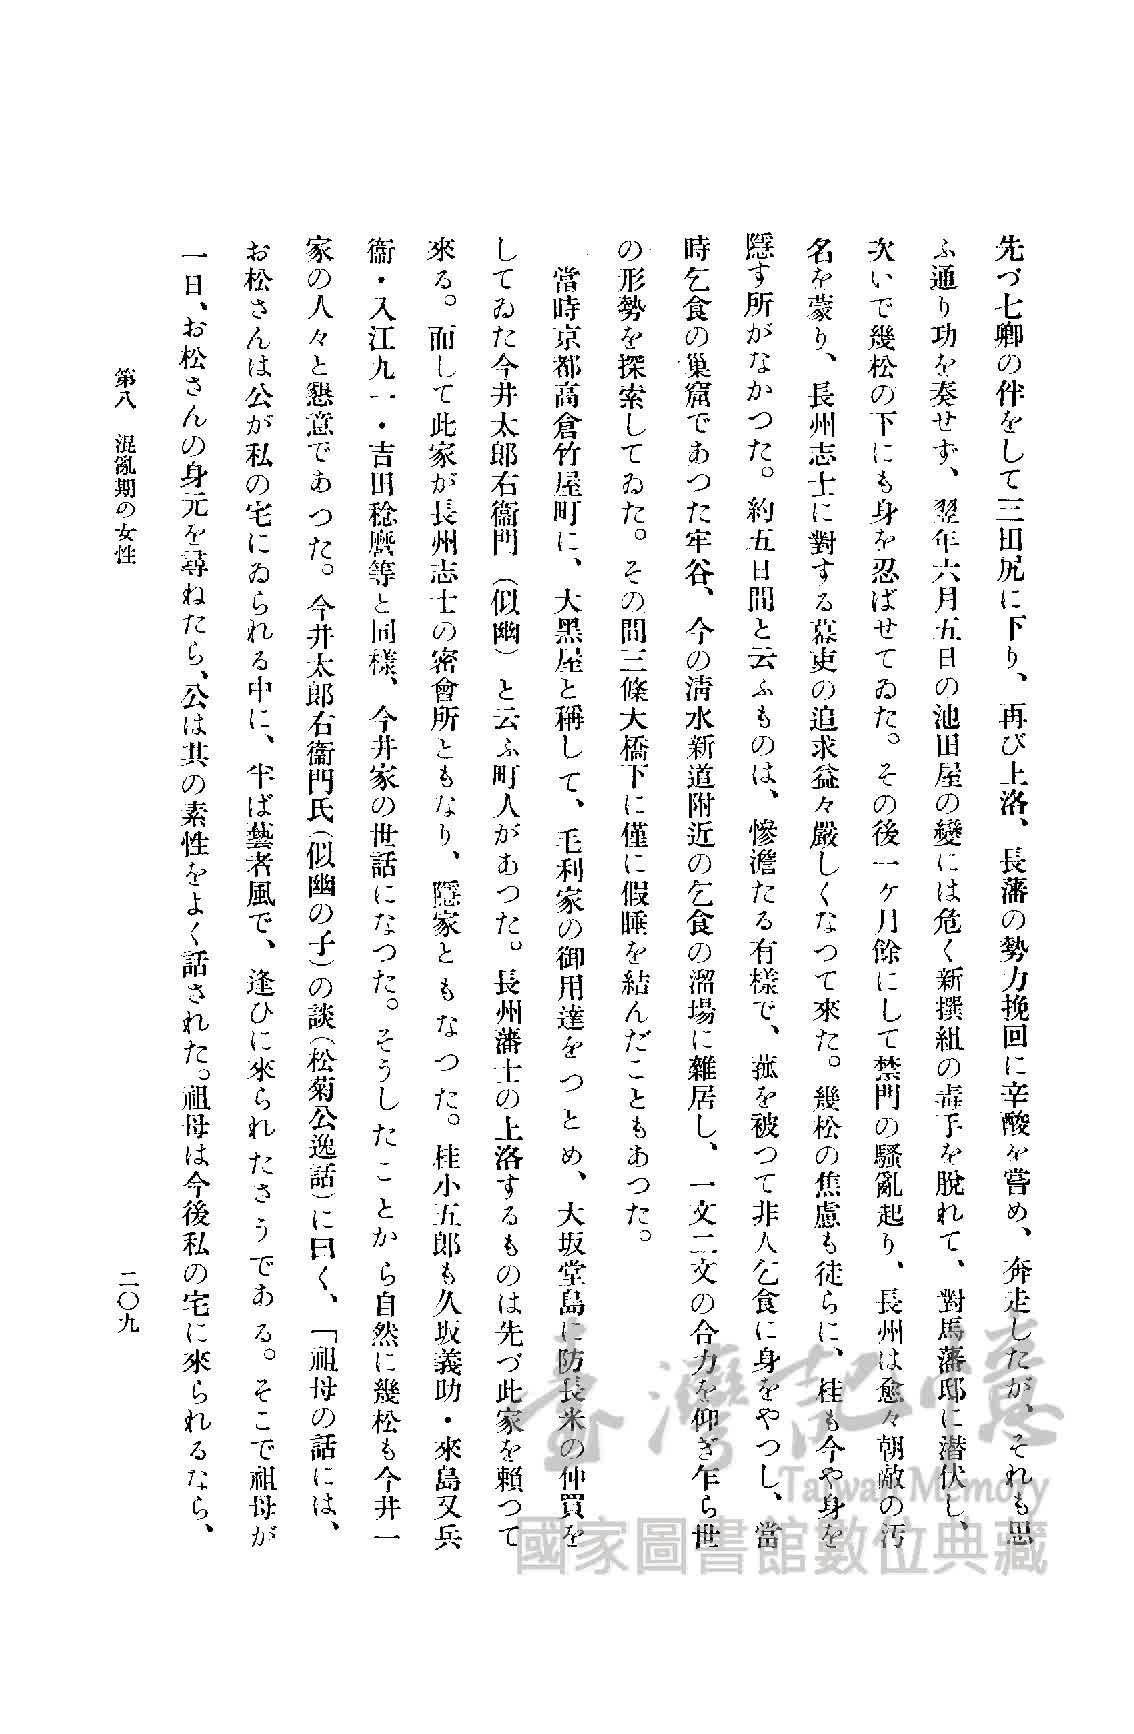 先づ七卿の伴をして三田尻に下り、再び上洛、長藩の勢力挽回に辛酸を嘗め、奔走したが、それも思
ふ通り功を奏せず、翌年六月五日の池田屋の變には危く新撰組の毒手を脫れて、對馬藩邸に潜伏し、
次いで幾松の下にも身を忍ばせてゐた。その後一ヶ月餘にして禁門の騷亂起り、長州は愈々朝敵の汚
名を蒙り、長州志士に對する幕吏の追求益々嚴しくなつて來た。幾松の焦慮も徒らに、桂も今や身を
隱す所がなかつた。約五日間と云ふものは、慘澹たる有樣で、菰を被つて非人乞食に身をやつし、當
時乞食の巢窟であつた牢谷、今の淸水新道附近の乞食の溜場に雜居し、一文二文の合力を仰ぎ乍ら世
の形勢を探索してゐた。その間三條大橋下に僅に假睡を結んだこともあつた。
當時京都高倉竹屋町に、大黑屋と稱して、毛利家の御用達をつとめ、大坂堂島に防長米の仲買を
してゐた今井太郞右衞門（似幽）と云ふ町人があつた。長州藩士の上洛するものは先づ此家を賴つて
來る。而して此家が長州志士の密會所ともなり、隱家ともなつた。桂小五郞も久坂義助・來島又兵
衞・入江九一・吉田稔麿等と同樣、今井家の世話になつた。そうしたことから自然に幾松も今井一
家の人々と懇意であつた。今井太郞右衞門氏（似幽の子）の談（松菊公逸話）に曰く、「祖母の話には、
お松さんは公が私の宅にゐられる中に、半ば藝者風で、逢ひに來られたさうである。そこで祖母が
一日、お松さんの身元を尋ねたら、公は其の素性をよく話された。祖母は今後私の宅に來られるなら、
第八 混亂期の女性
二〇九
臺灣記憶
Taiwan Memory
國家圖書館數位典藏